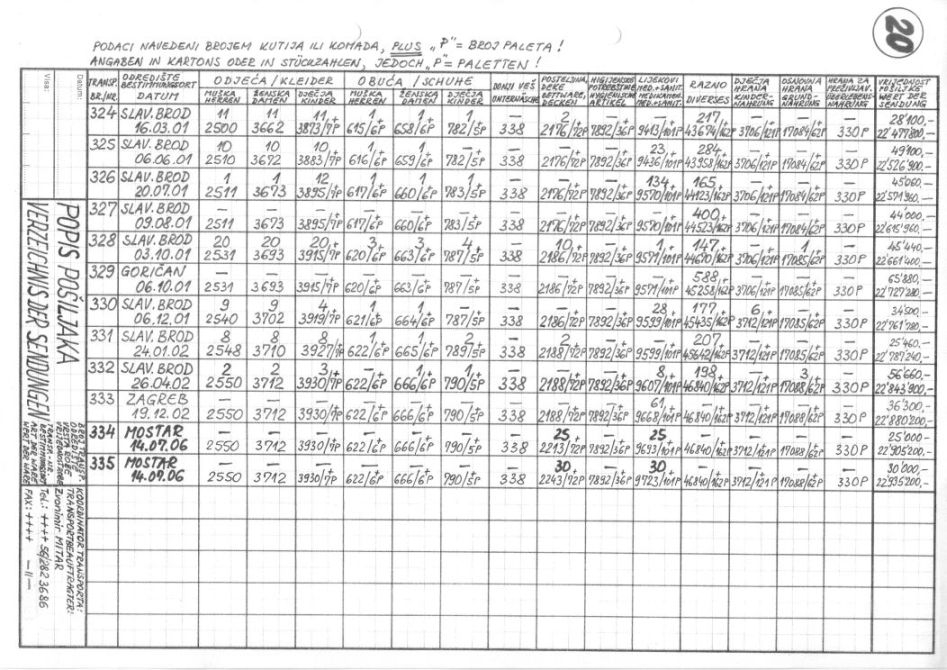 20
PODACI NAVEDENI BROJEM KUTIJA ILI KOMADA, PLUS „P"= BROJ PALETA!
ANGABEN IN KARTONS ODER IN STÜCKZAHLEN, JEDOCH „P"= PALETTEN!
TRANSP. BR./NR. ODREDIŠTE BESTIMMUNGSORT DATUM ODJEĆA/KLEIDER MUŠKA HERREN ŽENSKA DAMEN DJEČJA KINDER OBUĆA/SCHUHE MUŠKA HERREN ŽENSKA DAMEN DJEČJA KINDER DONJI VEŠ UNTERWÄSCHE POSTELJINA, DEKE BETTWARE, DECKEN HIGIJENSKE POTREBŠTINE HYGIENISCHE ARTIKEL LIJEKOVI MED.+SANIT. MEDIKAMEN. MED.+SANIT. RAZNO DIVERSES DJEČJA HRANA KINDER-NAHRUNG OSNOVNA HRANA GRUND-NAHRUNG HRANA ZA PREŽIVLJAV. ÜBERLEBENS-NAHRUNG VRIJEDNOST POŠILJKE WERT DER SENDUNG
324 SLAV. BROD 11 11 11+ 1+ 1+ 1+ — 2+ —+ —+ 217+ —+ —+ — 28'100,-
16.03.01 2500 3662 3873/7P 615/6P 658/6P 782/5P 338 2176/72P 7892/36P 9413/101P 43674/162P 3706/121P 17084/62P 330P 22'477'800,-
325 SLAV. BROD 10 10 10+ 1+ 1+ —+ — —+ —+ 23+ 284+ —+ —+ — 49'100,-
06.06.01 2510 3672 3883/7P 616/6P 659/6P 782/5P 338 2176/72P 7892/36P 9436/101P 43958/162P 3706/121P 17084/62P 330P 22'526'900,-
326 SLAV. BROD 1 1 12+ 1+ 1+ 1+ — —+ —+ 134+ 165+ —+ —+ — 45'060,-
20.07.01 2511 3673 3895/7P 617/6P 660/6P 783/5P 338 2176/72P 7892/36P 9570/101P 44123/162P 3706/121P 17084/62P 330P 22'571'960,-
327 SLAV. BROD — — —+ —+ —+ —+ — —+ —+ —+ 400+ —+ —+ — 44'000,-
09.08.01 2511 3673 3895/7P 617/6P 660/6P 783/5P 338 2176/72P 7892/36P 9570/101P 44523/162P 3706/121P 17084/62P 330P 22'615'960,-
328 SLAV. BROD 20 20 20+ 3+ 3+ 4+ — 10+ —+ 1+ 147+ —+ 1+ — 45'440,-
03.10.01 2531 3693 3915/7P 620/6P 663/6P 787/5P 338 2186/72P 7892/36P 9571/101P 44670/162P 3706/121P 17085/62P 330P 22'661'400,-
329 GORIČAN — — —+ —+ —+ —+ — —+ —+ —+ 588+ —+ —+ — 65'880,-
06.10.01 2531 3693 3915/7P 620/6P 663/6P 787/5P 338 2186/72P 7892/36P 9571/101P 45258/162P 3706/121P 17085/62P 330P 22'727'280,-
330 SLAV. BROD 9 9 4+ 1+ 1+ —+ — —+ —+ 28+ 177+ 6+ —+ — 34'500,-
06.12.01 2540 3702 3919/7P 621/6P 664/6P 787/5P 338 2186/72P 7892/36P 9599/101P 45435/162P 3712/121P 17085/62P 330P 22'761'780,-
331 SLAV. BROD 8 8 8+ 1+ 1+ 2+ — 2+ —+ —+ 207+ —+ —+ — 25'460,-
24.01.02 2548 3710 3927/7P 622/6P 665/6P 789/5P 338 2188/72P 7892/36P 9599/101P 45642/162P 3712/121P 17085/62P 330P 22'787'240,-
332 SLAV. BROD 2 2 3+ —+ 1+ 1+ — —+ —+ 8+ 198+ —+ 3+ — 56'660,-
26.04.02 2550 3712 3930/7P 622/6P 666/6P 790/5P 338 2188/72P 7892/36P 9607/101P 46840/162P 3712/121P 17088/62P 330P 22'843'900,-
333 ZAGREB — — —+ —+ —+ —+ — —+ —+ 61+ —+ —+ —+ — 36'300,-
19.12.02 2550 3712 3930/7P 622/6P 666/6P 790/5P 338 2188/72P 7892/36P 9668/101P 46840/162P 3712/121P 17088/62P 330P 22'880'200,-
334 MOSTAR — — —+ —+ —+ —+ — 25+ —+ 25+ —+ —+ —+ — 25'000,-
14.07.06 2550 3712 3930/7P 622/6P 666/6P 790/5P 338 2213/72P 7892/36P 9693/101P 46840/162P 3712/121P 17088/62P 330P 22'905'200,-
335 MOSTAR — — —+ —+ —+ —+ — 30+ —+ 30+ —+ —+ —+ — 30'000,-
14.07.06 2550 3712 3930/7P 622/6P 666/6P 790/5P 338 2243/72P 7892/36P 9723/101P 46840/162P 3712/121P 17088/62P 330P 22'935'200,-
Datum:
Visa:
POPIS POŠILJAKA
VERZEICHNIS DER SENDUNGEN
BROJ TRANSP.
ODREDIŠTE
VRSTA ROBE
VRIJEDNOST ROBE
TRANSP.-NR.
BESTIMMUNGSORT
ART DER WARE
WERT DER WARE
KOORDINATOR TRANSPORTA:
TRANSPORTBEAUFTRAGTER:
Zvonimir MITAR
Tel.: ++++ 56/282 3686
FAX: ++++ —"—